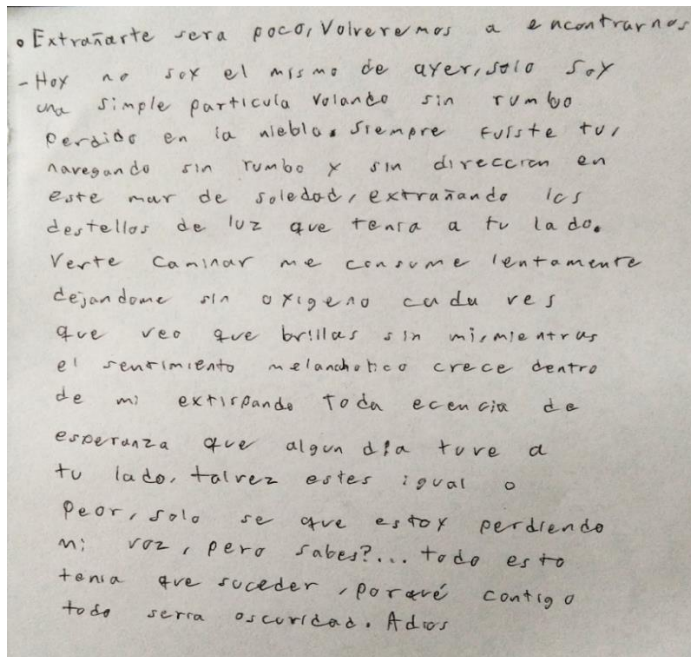 • Extrañarte sera poco, Volveremos a encontrarnos
- Hoy no soy el mismo de ayer, solo soy
una simple particula volando sin rumbo
perdido en la niebla. Siempre fuiste tu,
navegando sin rumbo y sin direccion en
este mar de soledad, extrañando los
destellos de luz que tenia a tu lado.
Verte caminar me consume lentamente
dejandome sin oxigeno cada ves
que veo que brillas sin mi, mientras
el sentimiento melancholico crece dentro
de mi extirpando toda ecencia de
esperanza que algun dia tuve a
tu lado, talvez estes igual o
peor, solo se que estoy perdiendo
mi voz, pero sabes?... todo esto
tenia que suceder, porqué contigo
todo seria oscuridad. Adios